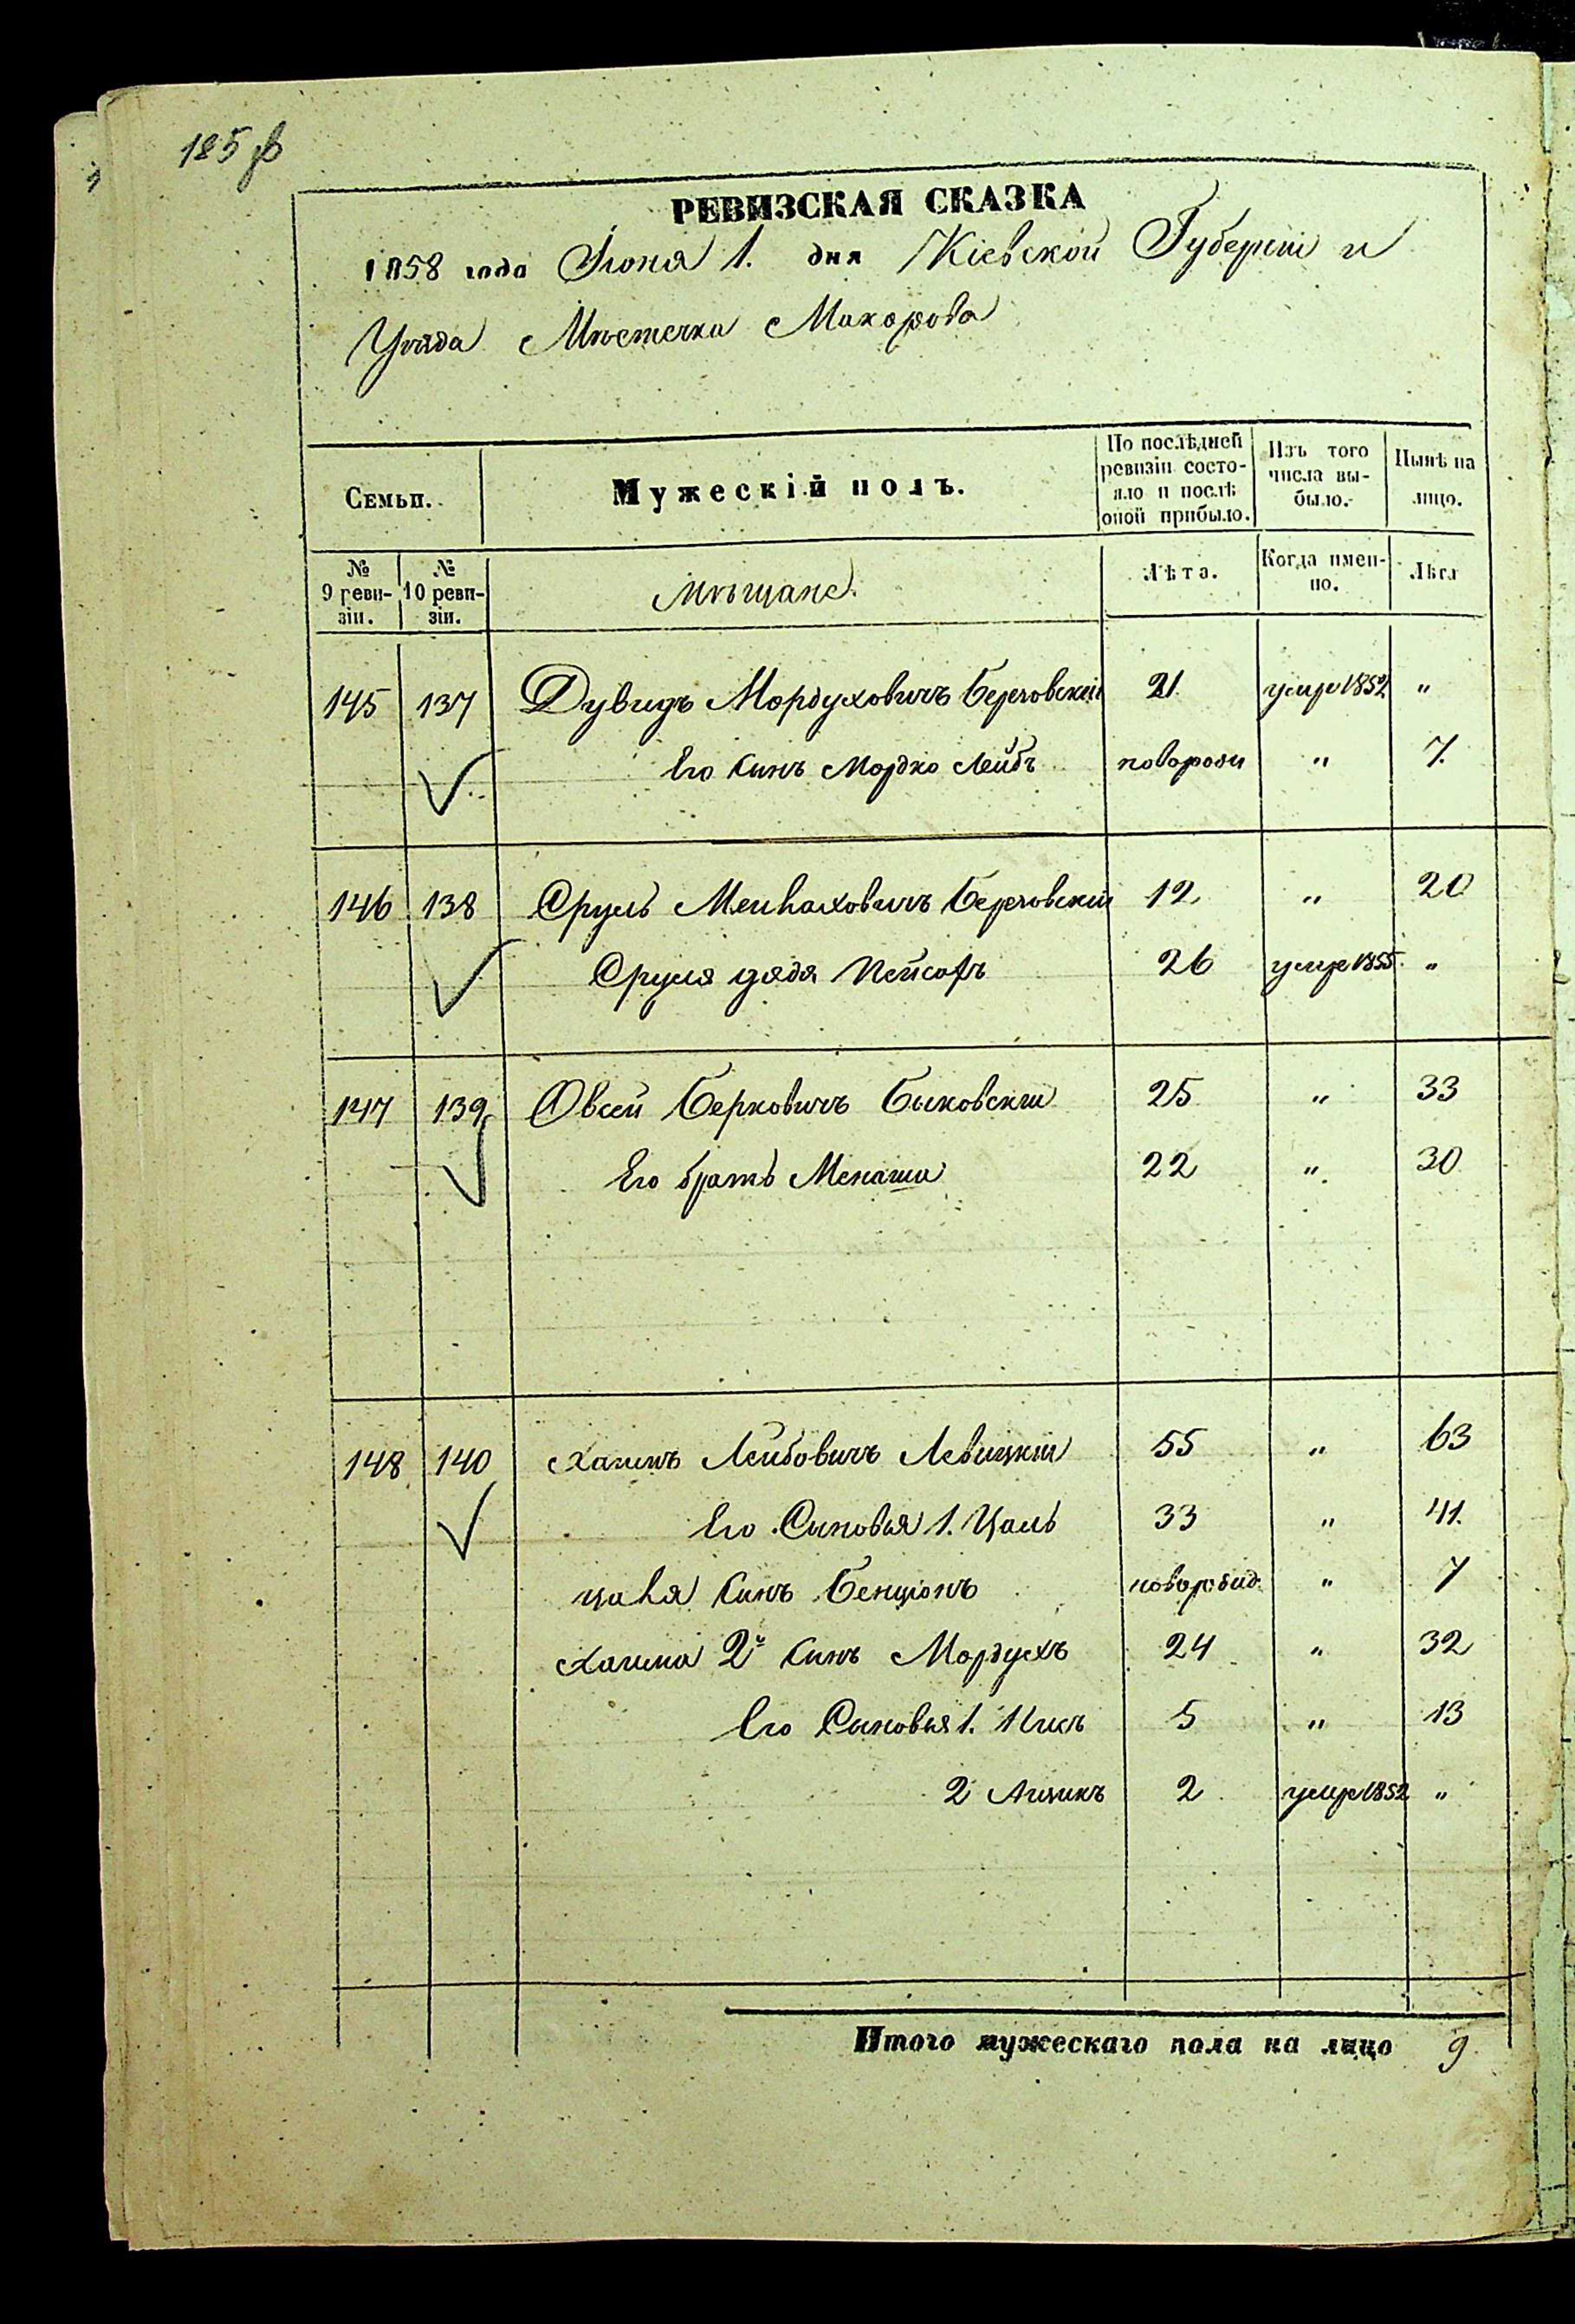 185 об
РЕВИЗСКАЯ СКАЗКА
1858 года Іюня 1. дня Кіевской Губерніи и
Уѣзда Мѣстечка Макарова
Семьи.
Мужескій полъ.
По послѣдней ревизіи состояло и послѣ оной прибыло.
Изъ того числа выбыло.
Нынѣ на лицо.
№ 9 ревизіи.
№ 10 ревизіи.
Мѣщане.
Лѣта.
Когда именно.
Лѣта
145 137 Дувидъ Мордуховичъ Березовскій 21 умре 1852 "
Его Сынъ Мордко Лейбъ новорожд " 7.
146 138 Сруль Менахов‌ичъ Березовскій 12 " 20
Сруля дядя Пейсахъ 26 умре 1855 "
147 139 Овсей Берковичъ Быковскій 25 " 33
Его братъ Менаша 22 " 30
148 140 Хаимъ Лейбовичъ Левицкій 55 " 63
Его Сыновья 1. Цаль 33 " 41.
Цаля Сынъ Бенціонъ новорожд " 7
Хаима 2й Сынъ Мордухъ 24 " 32
Его Сыновья 1. Ицк‌ъ 5 " 13
2 Айзикъ 2 умре 1852 "
Итого мужескаго пола на лицо 9